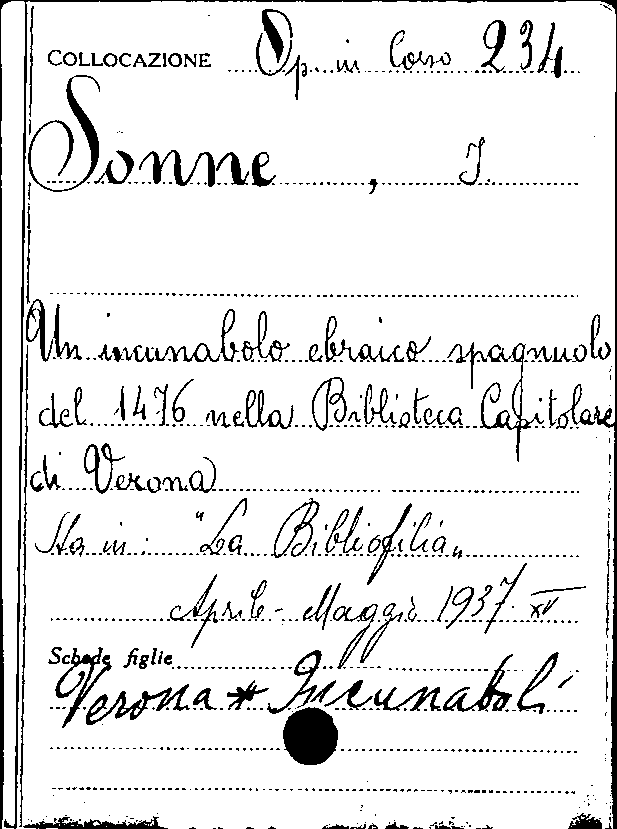 COLLOCAZIONE Op. in Corso 234
Sonne, I.
Un incunabolo ebraico spagnuolo
del 1476 nella Biblioteca Capitolare
di Verona
Sta in: "La Bibliofilia„
Aprile-Maggio 1937. XV
Schede figlie
Verona * Incunaboli